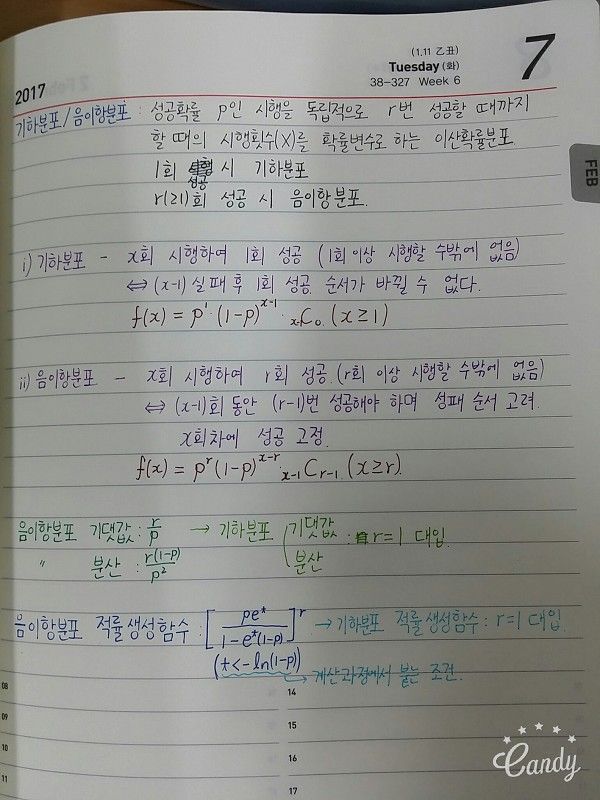 (1.11 乙丑)
2017
Tuesday (화)
7
38-327 Week 6
FEB
기하분포/음이항분포 : 성공확률 p인 시행을 독립적으로 r번 성공할 때까지
할 때의 시행횟수(X)를 확률변수로 하는 이산확률분포.
1회 성공 시 기하분포
r(≥1)회 성공 시 음이항분포.
i) 기하분포 - x회 시행하여 1회 성공 (1회 이상 시행할 수밖에 없음)
⇔ (x-1) 실패 후 1회 성공. 순서가 바뀔 수 없다.
f(x) = p¹ (1-p)ˣ⁻¹ · ₓ₋₁C₀ (x≥1)
ii) 음이항분포 - x회 시행하여 r회 성공. (r회 이상 시행할 수밖에 없음)
⇔ (x-1)회 동안 (r-1)번 성공해야 하며 성패 순서 고려.
x회차에 성공 고정.
f(x) = pʳ (1-p)ˣ⁻ʳ · ₓ₋₁Cᵣ₋₁ (x≥r)
음이항분포 기댓값 : r/p → 기하분포 기댓값 : r=1 대입.
" 분산 : r(1-p)/p² 분산
음이항분포 적률생성함수 : [peᵗ/1-eᵗ(1-p)]ʳ → 기하분포 적률생성함수 : r=1 대입.
(t<-ln(1-p))
→ 계산과정에서 붙는 조건.
08 14
09 15
10 16
11 17
Candy